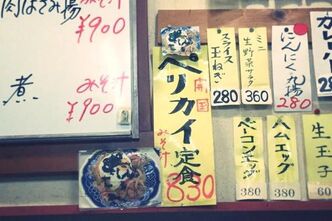 肉はさみ揚
¥900
煮
みそ汁
¥900
ペリカイ定食
開国
みそ汁
830
スライス
玉ねぎ
280
ミニ
生野菜サラダ
360
にんにく丸揚
280
カレー
ベーコンエッグ
380
ハムエッグ
380
生